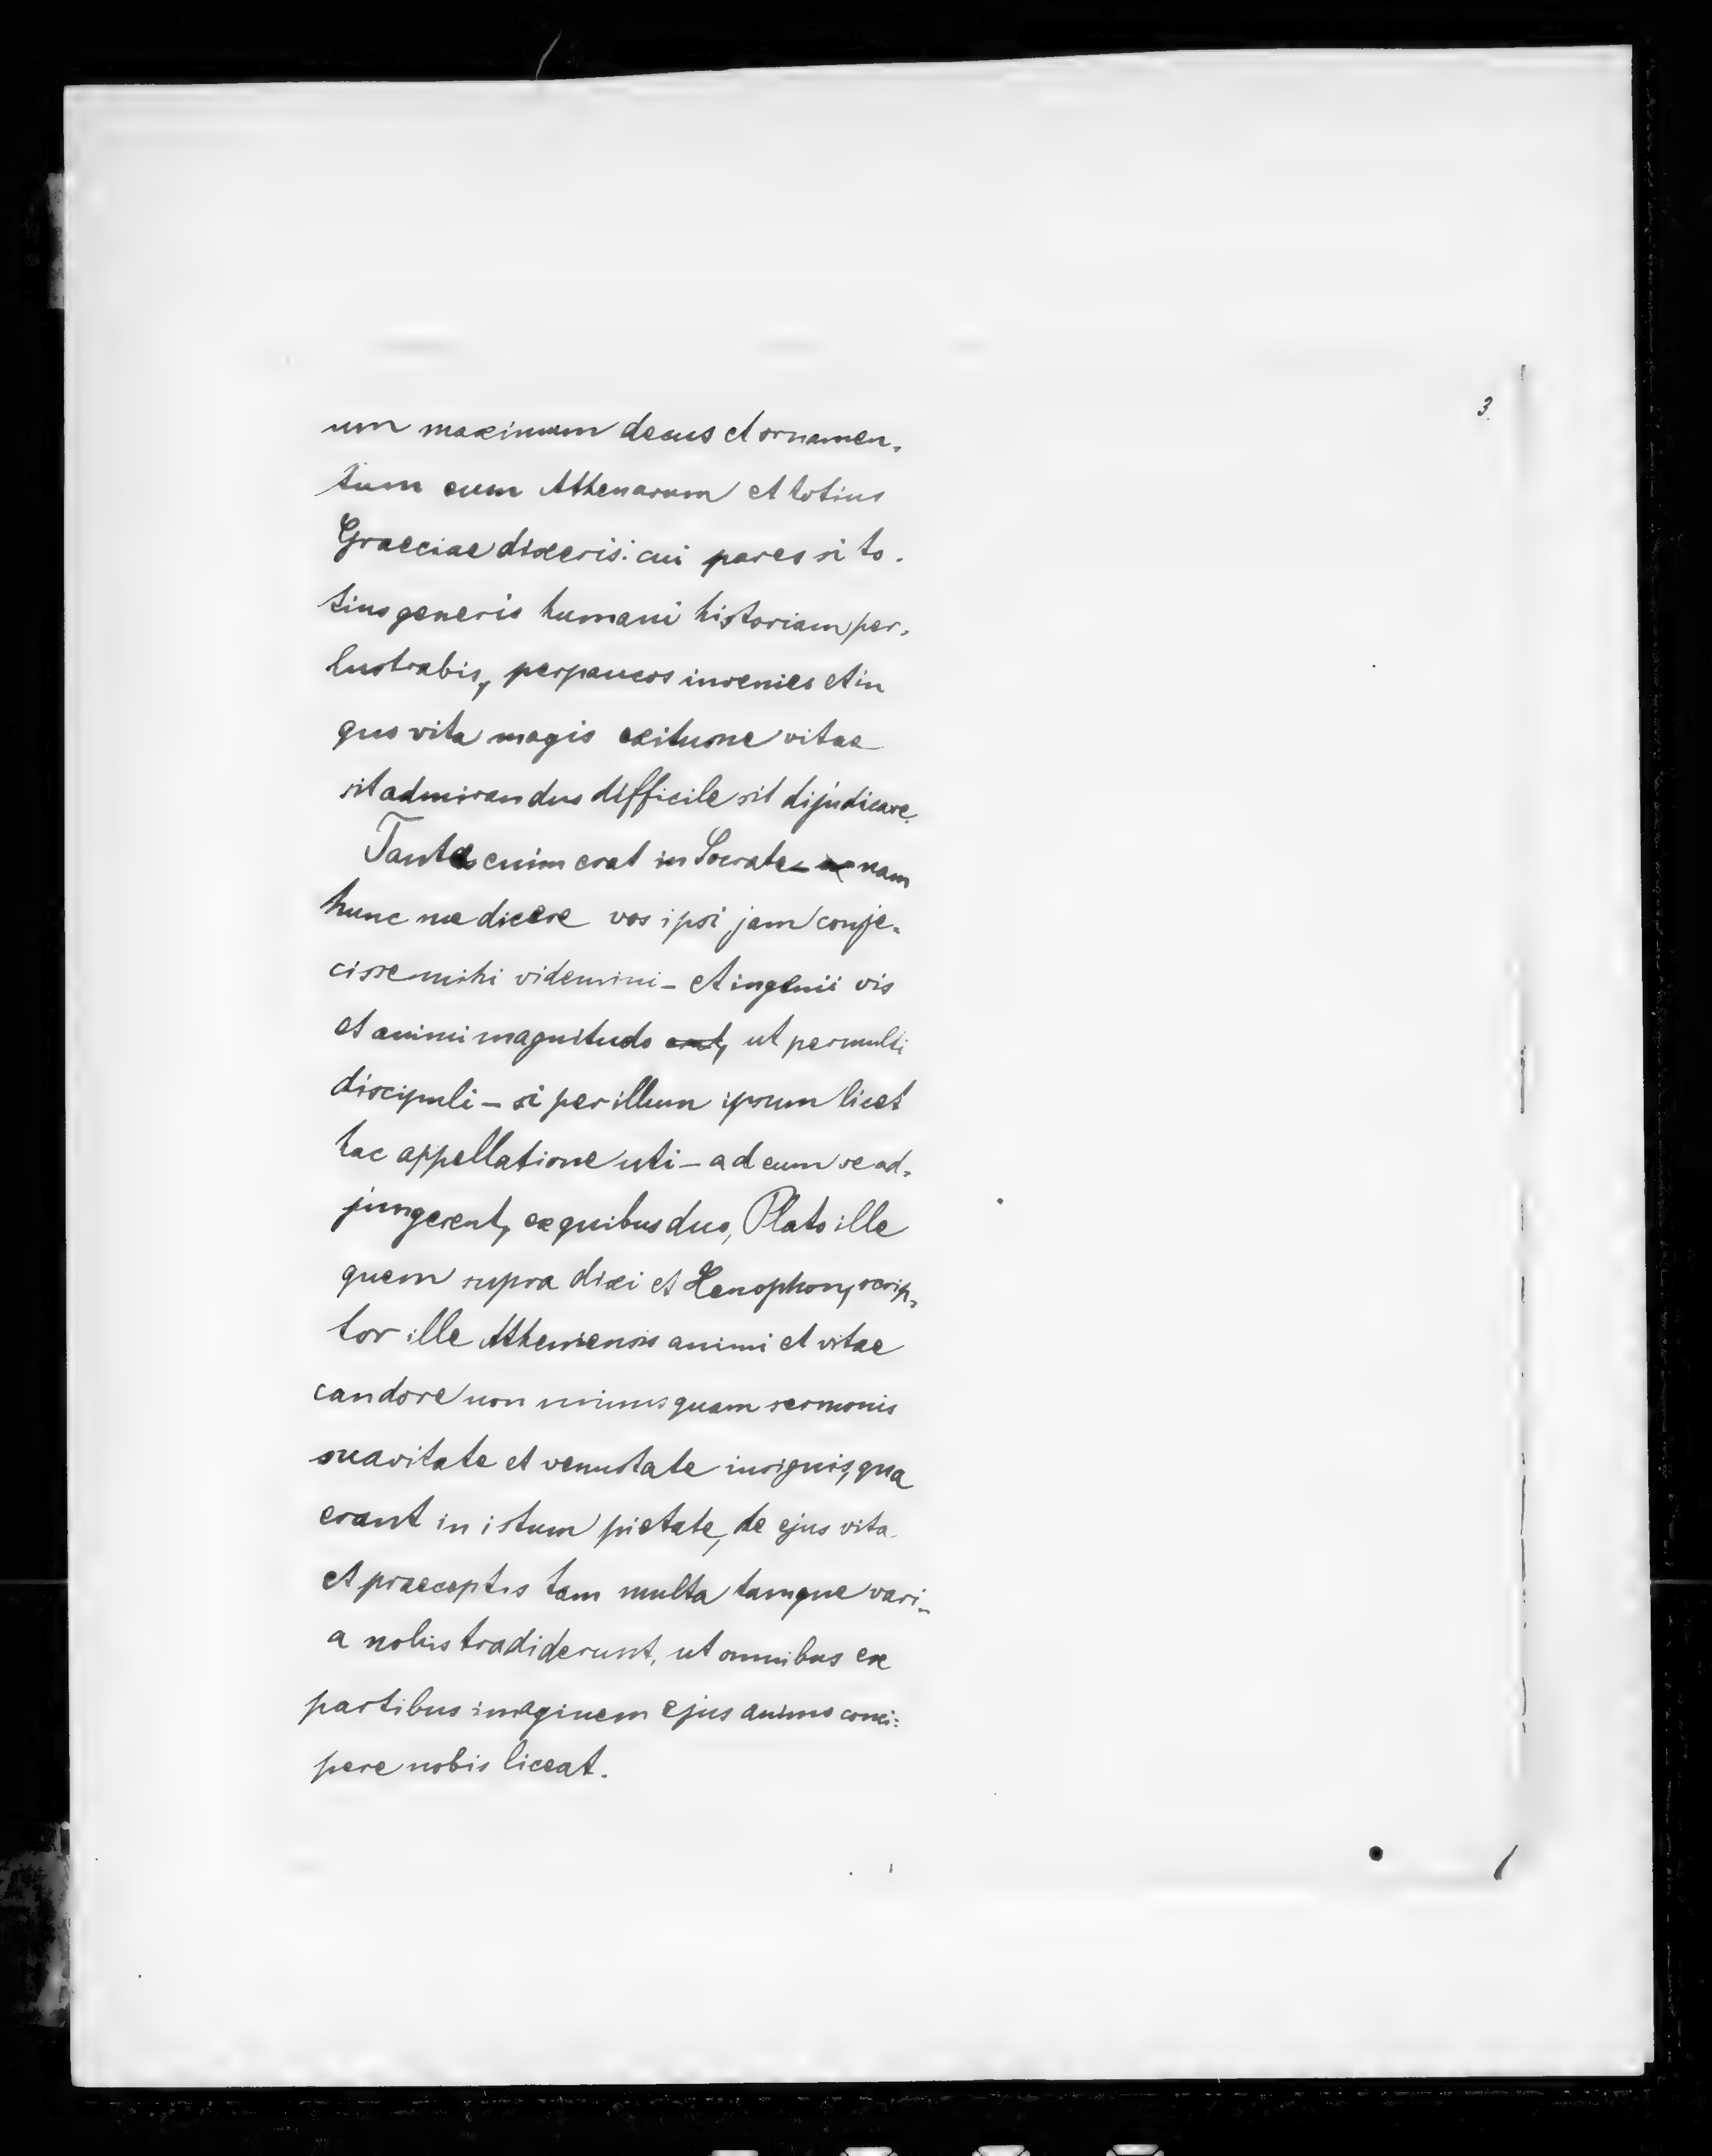 3.
um maximum decus et ornamen-
tum eum Athenarum et totius
Graeciae dixeris: cui pares si to-
tius generis humani historiam per-
lustrabis, perpaucos invenies et in
quo vita magis exitune vitae
sit admirandus difficile sit dijudicare.
Tanta enim erat in Socrate – nam
hunc me dicere vos ipsi jam conje-
cisse mihi videmini – et ingenii vis
et animi magnitudo erat, ut permulti
discipuli – si per illum ipsum licet
hac appellatione uti – ad eum se ad-
jungerent, ex quibus duo, Plato ille
quem supra dixi et Xenophon, scrip-
tor ille Atheniensis animi et vitae
candore non minus quam sermonis
suavitate et venustate insignis, qua
erant in istum pietate, de ejus vita
et praeceptis tam multa tamque vari-
a nobis tradiderunt, ut omnibus ex
partibus imaginem ejus animo conci-
pere nobis liceat.